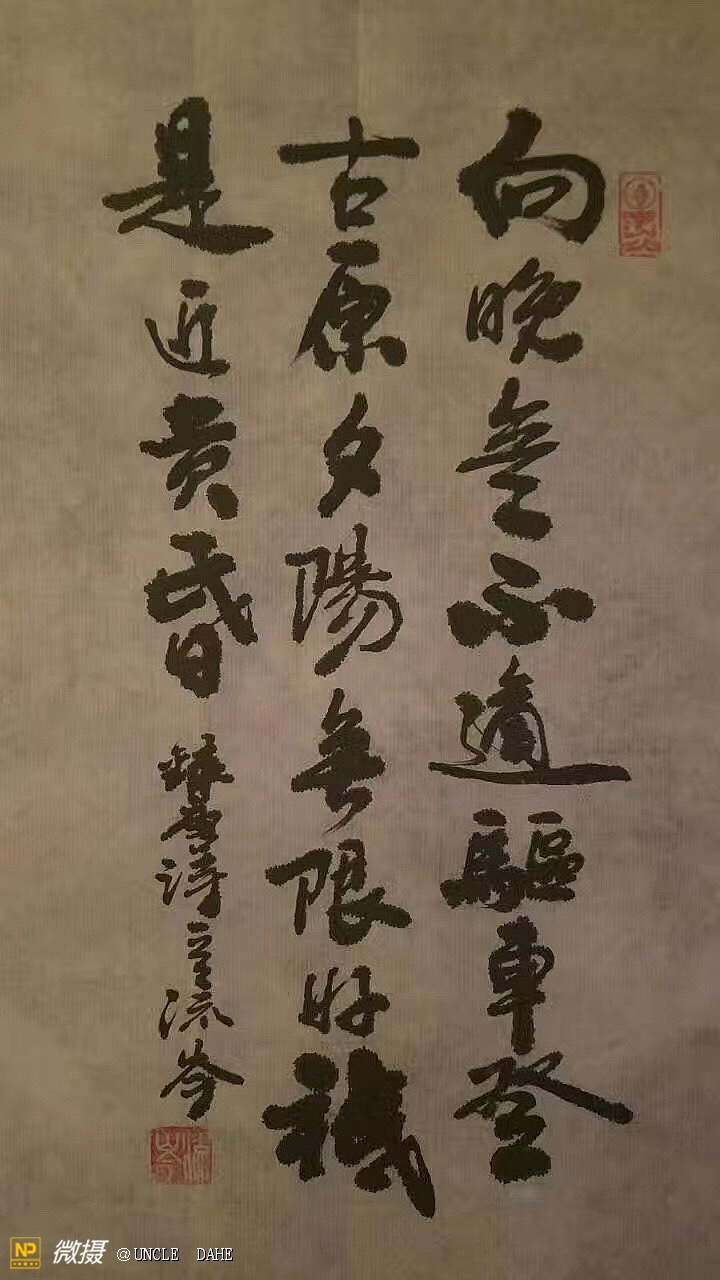 向晚意不適驅車登
古原夕陽無限好祗
是近黄昏
詩
流岑
NP 微摄 @UNCLE DAHE